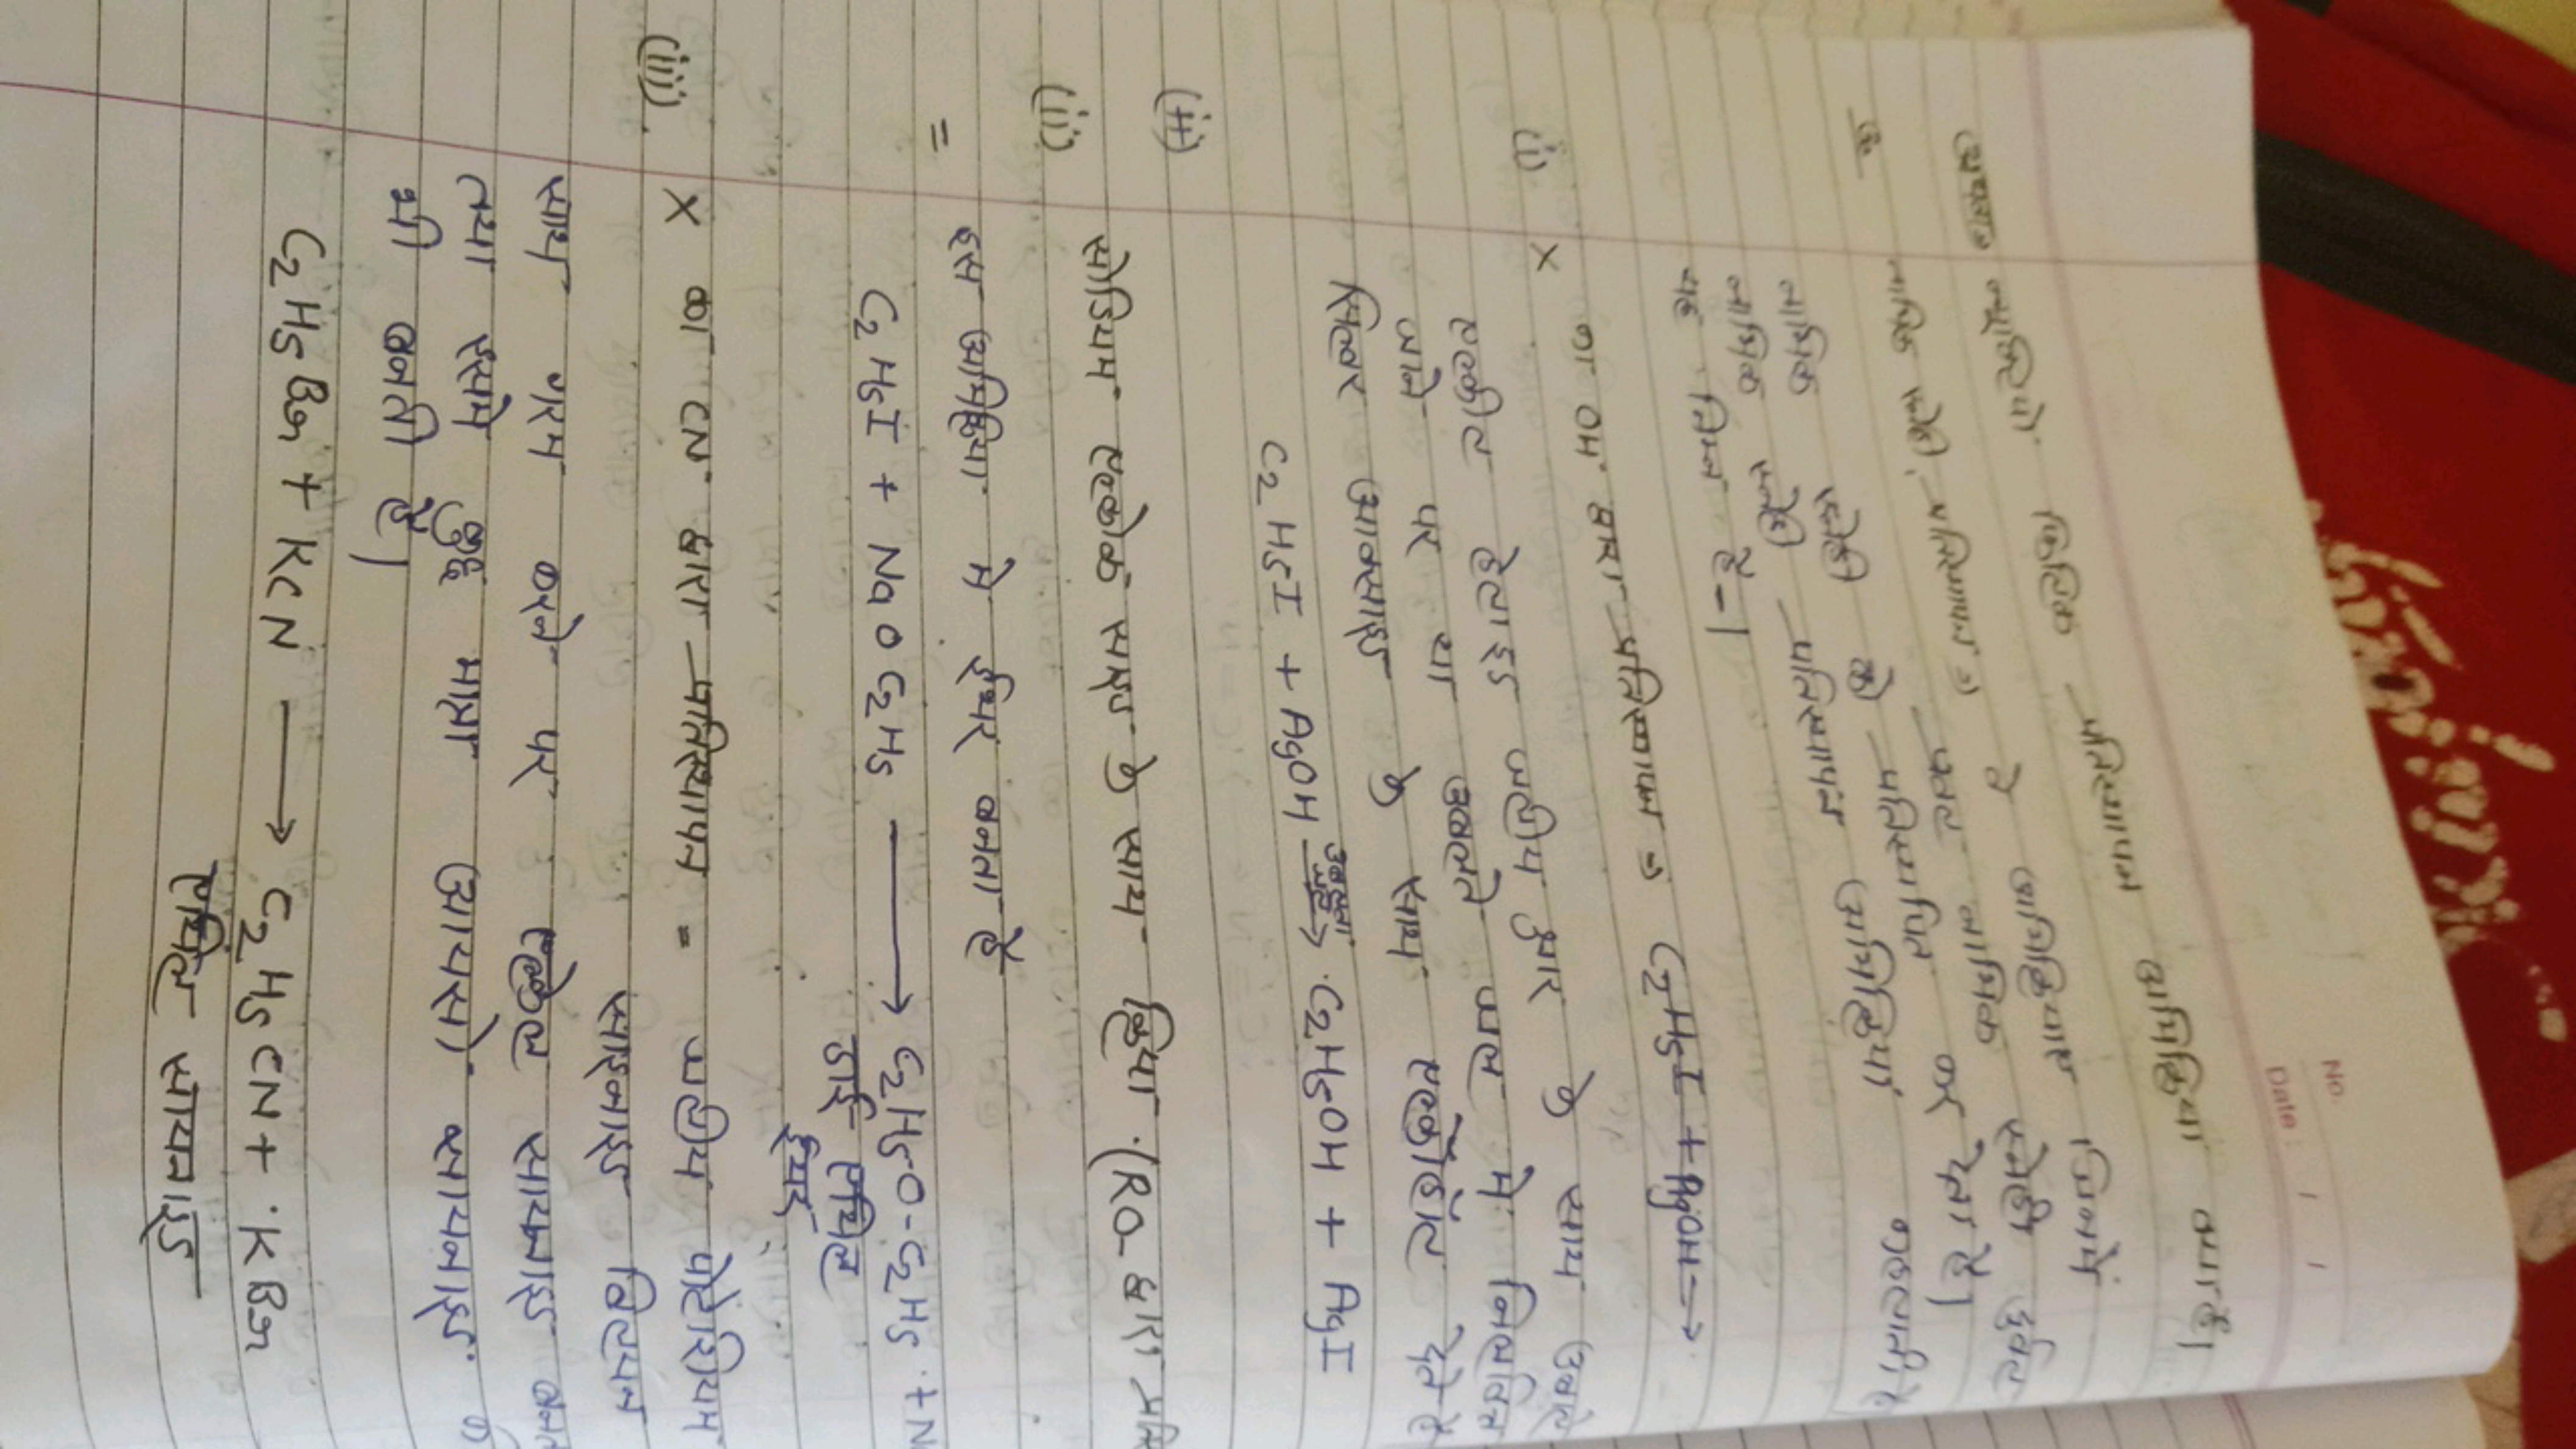 No.
Date : / /
न्यूक्लियो फिलिक प्रतिस्थापन अभिक्रिया क्या है।
उ०
वे अभिक्रियाए जिनमें
प्रबल नाभिक स्नेही दुर्बल
नाभिक स्नेही को प्रतिस्थापित कर देता है।
नाभिक स्नेही प्रतिस्थापन अभिक्रिया कहलाती है
यह निम्न है-।
(i) X का OH द्वारा प्रतिस्थापन → C2H5I + AgOH →
एल्कील हेलाइड जलीय क्षार के साथ उबाले
जाने पर या उबलते जल में निलंबित
सिल्वर आक्साइड के साथ एल्कोहॉल देते है
C2H5I + AgOH → C2H5OH + AgI
(ii)
सोडियम एल्कोक साइड के साथ क्रिया (RO- द्वारा
(ii)
= इस अभिक्रिया मे ईथर बनता है
C2H5I + NaOC2H5 ⟶ C2H5-O-C2H5 + N
डाई एथिल
ईथर
(iii) X का CN द्वारा प्रतिस्थापन = जलीय पोटाशियम
साइनाइड विलयन
साथ गरम करने पर एल्कील सायनाइड
तथा इसमे कुछ मात्रा आयसो सायनाइड
भी बनती है।
C2H5Br + KCN ⟶ C2H5CN + KBr
एथिल सायनाइड